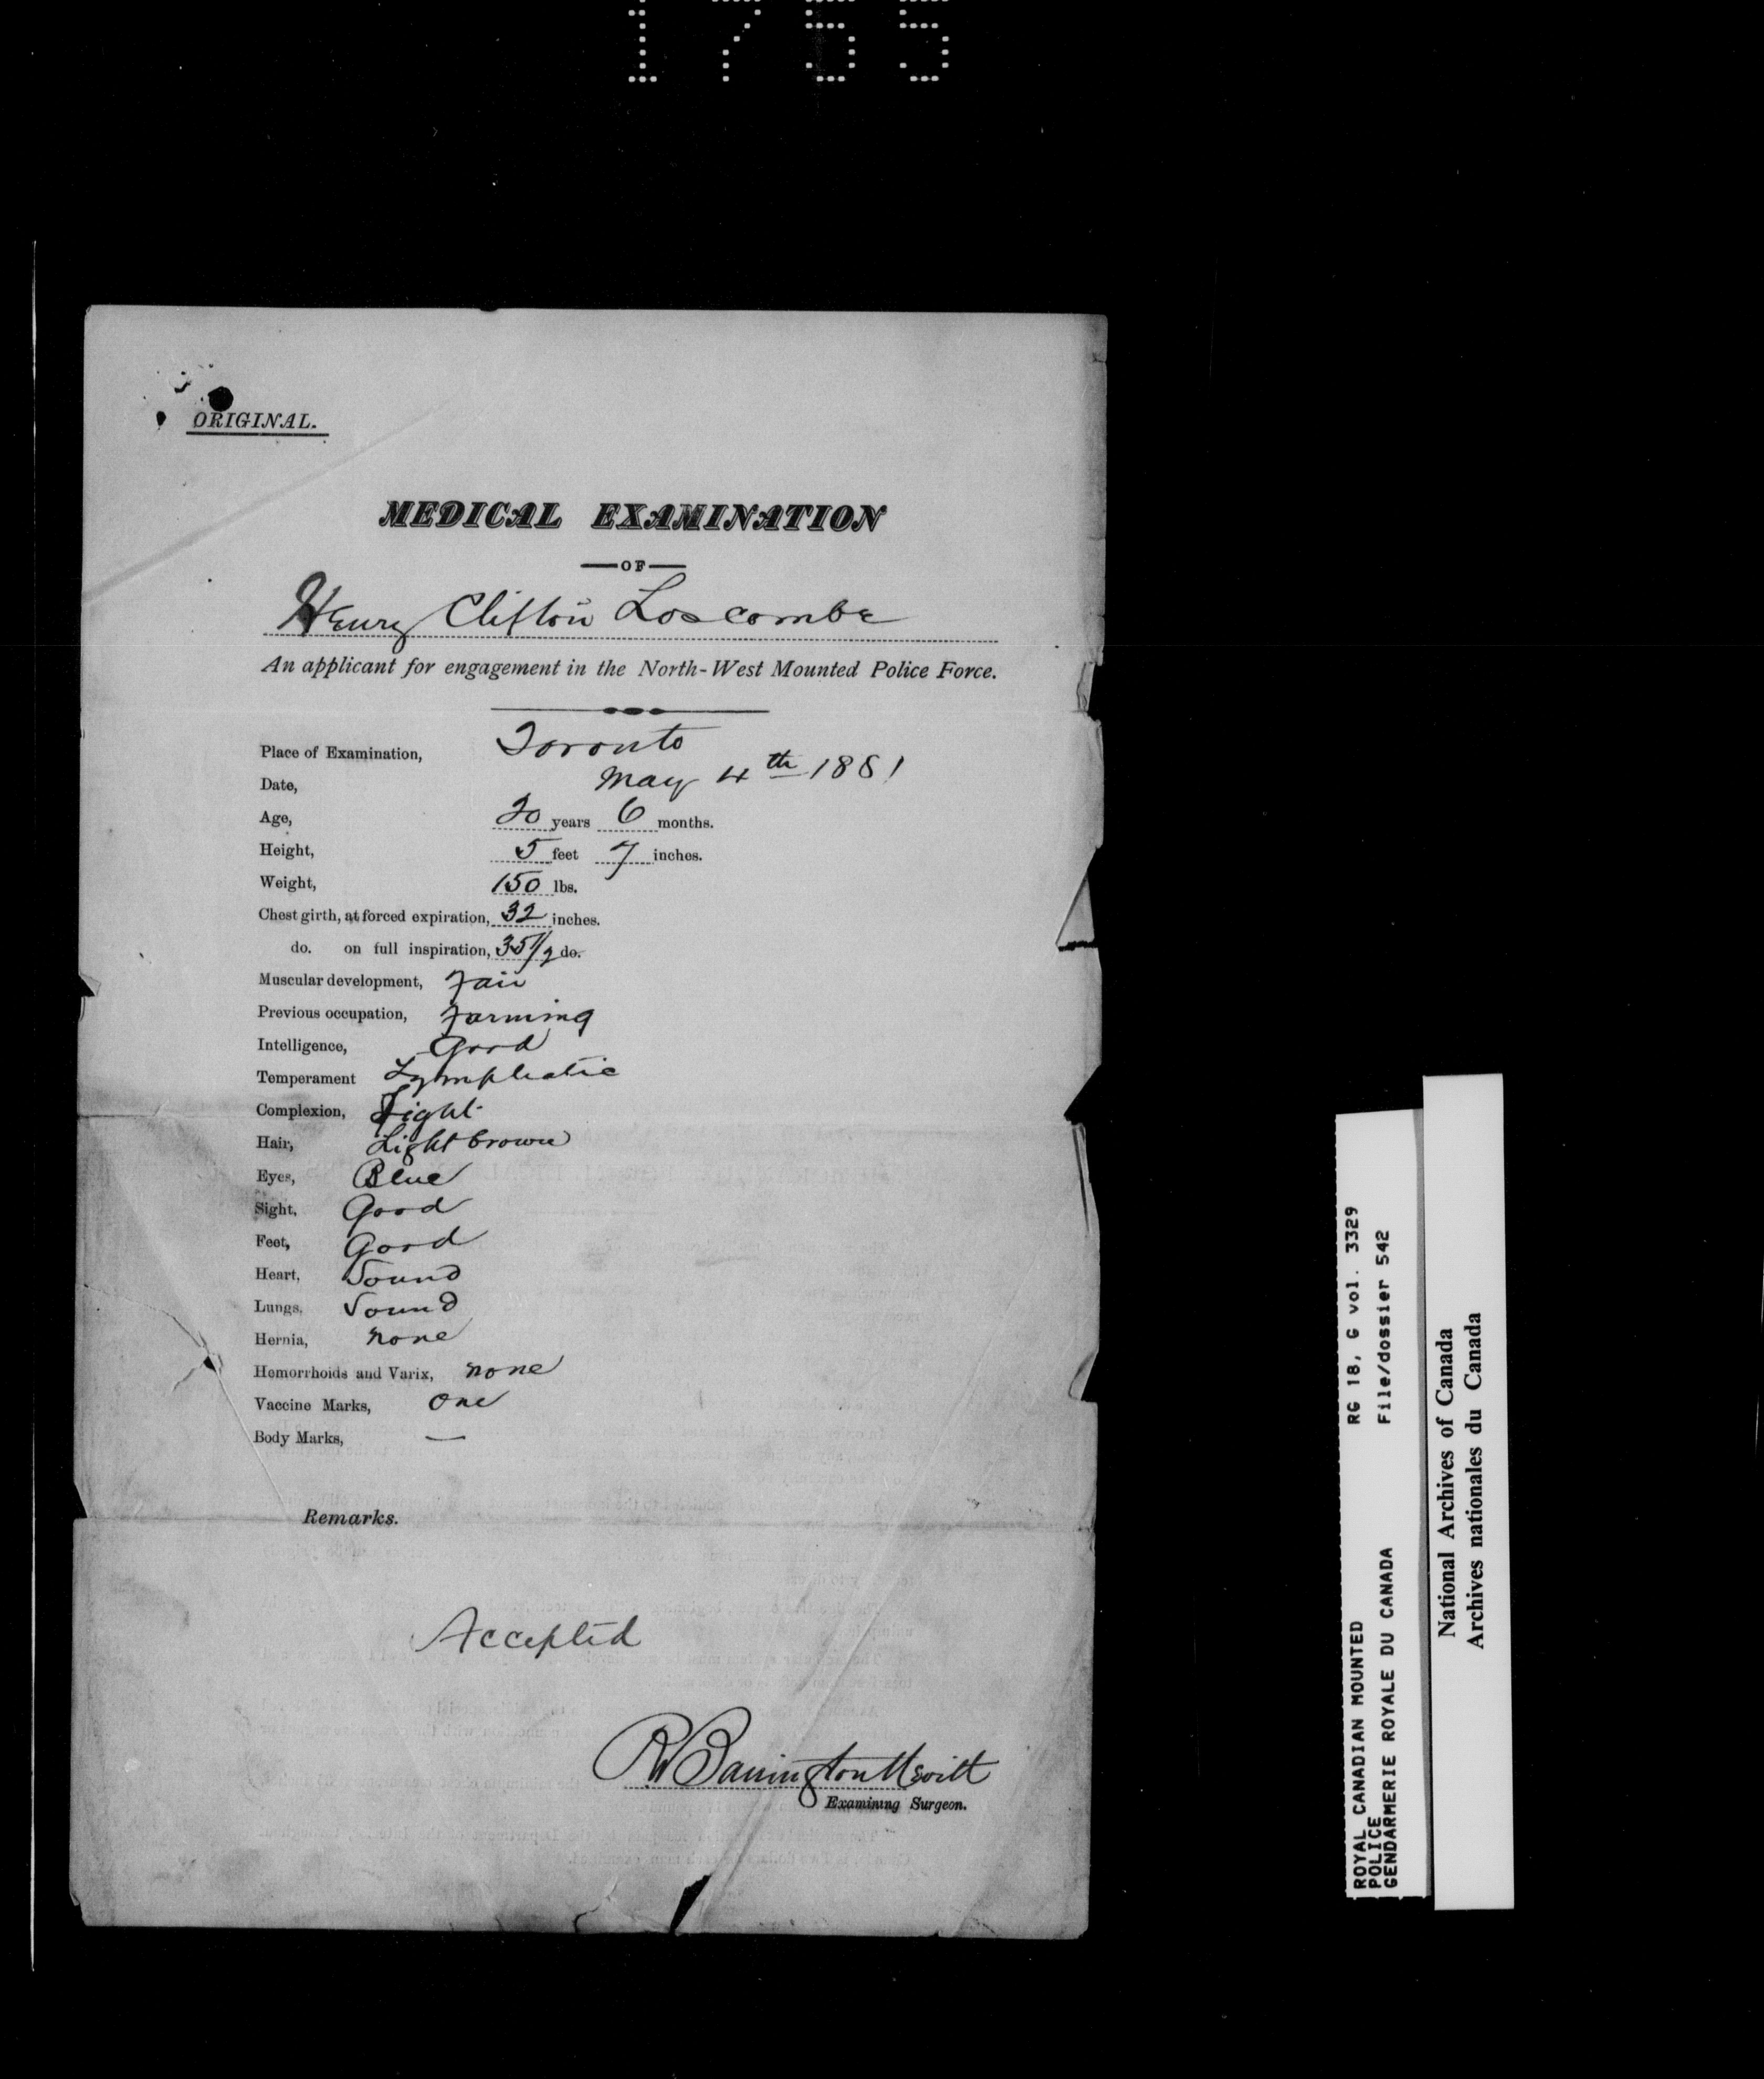 1765
ORIGINAL.
MEDICAL EXAMINATION
—OF—
Henry Clifton Loscombe
An applicant for engagement in the North-West Mounted Police Force.
Place of Examination, Toronto
Date, May 4th 1881
Age, 20 years 6 months.
Height, 5 feet 7 inches.
Weight, 150 lbs.
Chest girth, at forced expiration, 32 inches.
do. on full inspiration, 35 1/2 do.
Muscular development, Fair
Previous occupation, Farming
Intelligence, Good
Temperament Lymphatic
Complexion, Light
Hair, Light brown
Eyes, Blue
Sight, Good
Feet, Good
Heart, Sound
Lungs, Sound
Hernia, none
Hemorrhoids and Varix, none
Vaccine Marks, One
Body Marks, —
Remarks.
Accepted
Examining Surgeon.
ROYAL CANADIAN MOUNTED RG 18, G vol. 3329
POLICE File/dossier 542
GENDARMERIE ROYALE DU CANADA
National Archives of Canada
Archives nationales du Canada